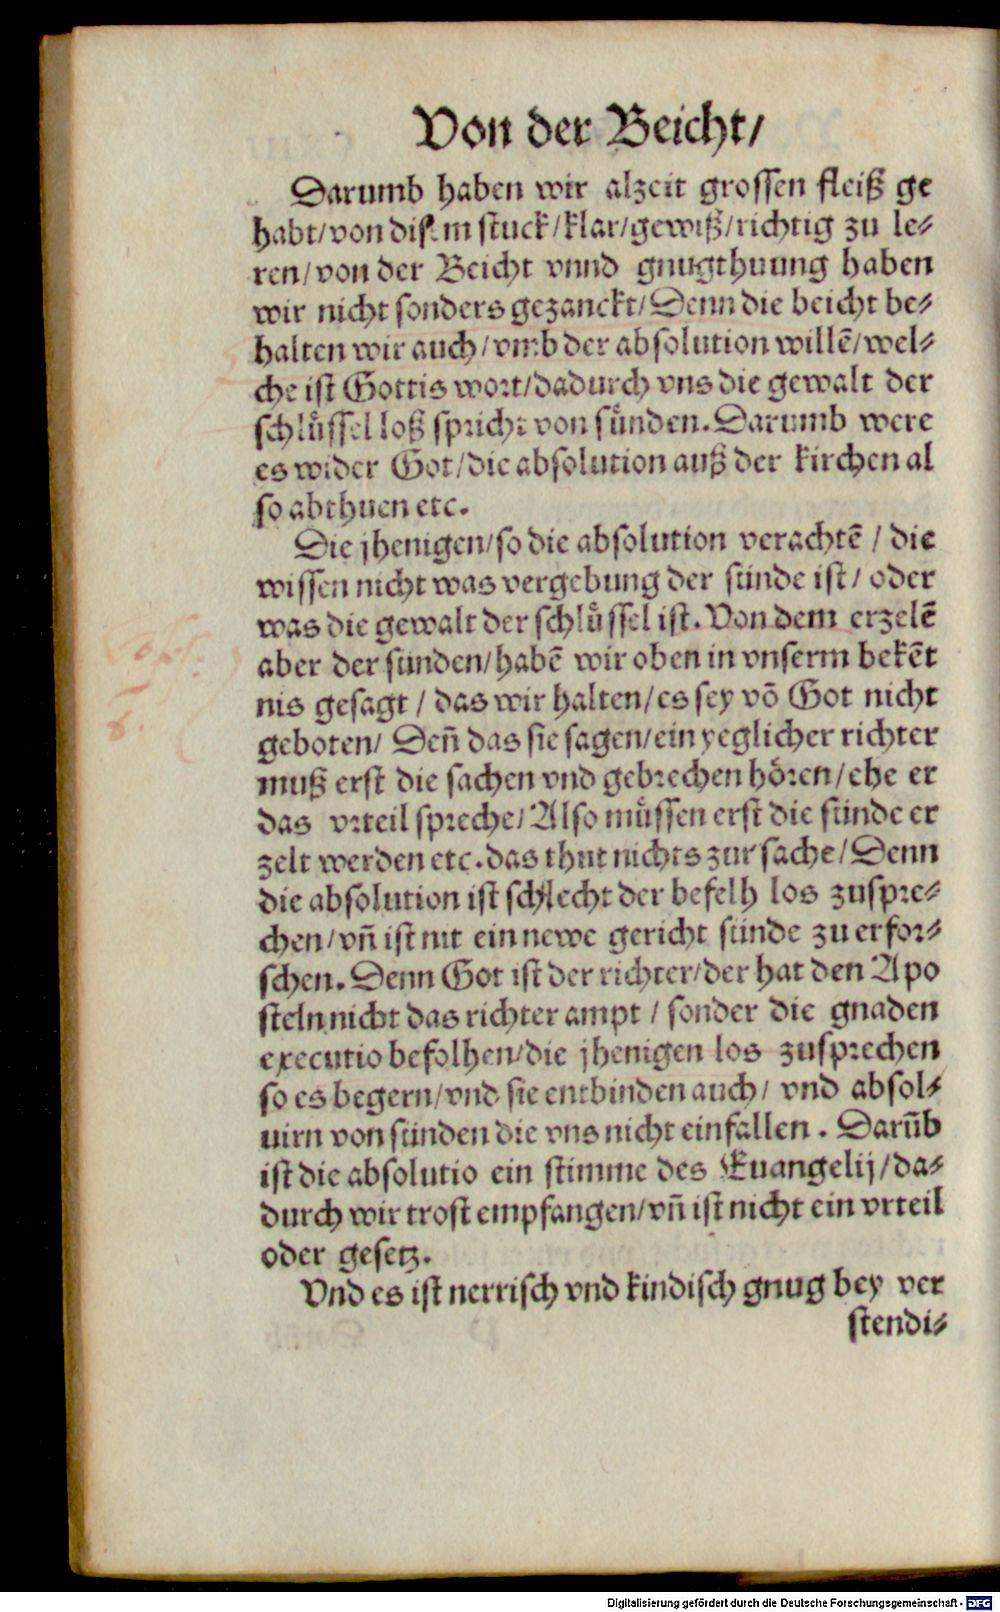 Von der Beicht/
Darumb haben wir alzeit grossen fleiß ge
habt/von disem stuck/klar/gewiß/richtig zu le-
ren/von der Beicht vnnd gnugthuung haben
wir nicht sonders gezanckt/Denn die beicht be-
halten wir auch/vmb der absolution willē/wel-
che ist Gottis wort/dadurch vns die gewalt der
schlüssel loß spricht von sünden. Darumb were
es wider Got/die absolution auß der kirchen al
so abthuen etc.
Die jhenigen/so die absolution verachtē / die
wissen nicht was vergebung der sünde ist/ oder
was die gewalt der schlüssel ist. Von dem erzelē
aber der sunden/habē wir oben in vnserm bekēt
nis gesagt / das wir halten/es sey vō Got nicht
geboten/ Den̄ das sie sagen/ein yeglicher richter
muß erst die sachen vnd gebrechen hören/ehe er
das vrteil spreche/Also müssen erst die sünde er
zelt werden etc. das thut nichts zur sache/Denn
die absolution ist schlecht der befelh los zuspre-
chen/vn̄ ist nit ein newe gericht sünde zu erfor-
schen. Denn Got ist der richter/der hat den Apo
steln nicht das richter ampt / sonder die gnaden
executio befolhen/die jhenigen los zusprechen
so es begern/vnd sie entbinden auch/ vnd absol-
uirn von sünden die vns nicht einfallen. Darūb
ist die absolutio ein stimme des Euangelij/da-
durch wir trost empfangen/vn̄ ist nicht ein vrteil
oder gesetz.
Vnd es ist nerrisch vnd kindisch gnug bey ver
stendi-
Digitalisierung gefördert durch die Deutsche Forschungsgemeinschaft - DFG